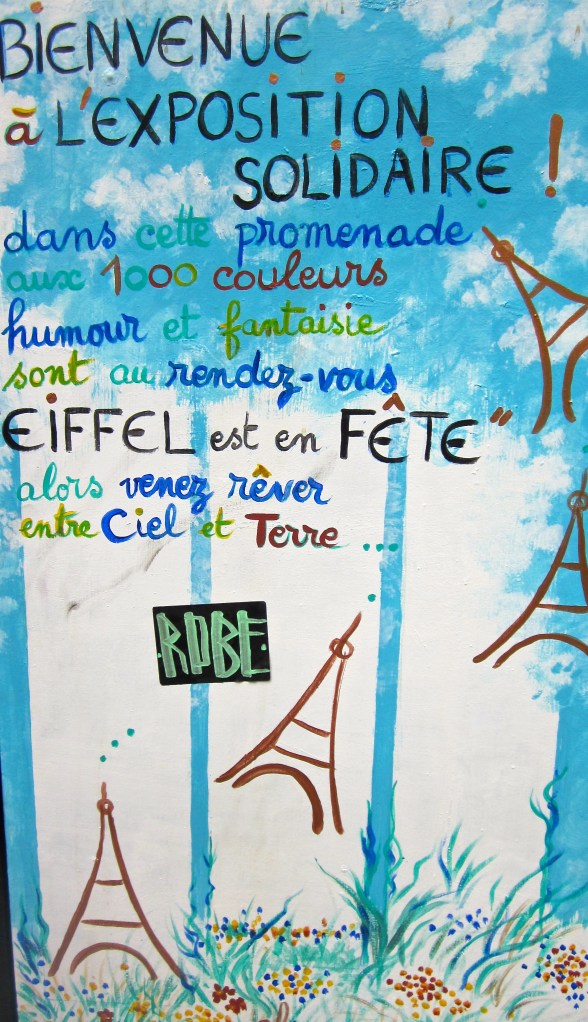 BIENVENUE
à L'EXPOSITION
SOLIDAIRE !
dans cette promenade
aux 1000 couleurs
humour et fantaisie
sont au rendez-vous
EIFFEL est en FÊTE"
alors venez rêver
entre Ciel et Terre ...
·ROBE·